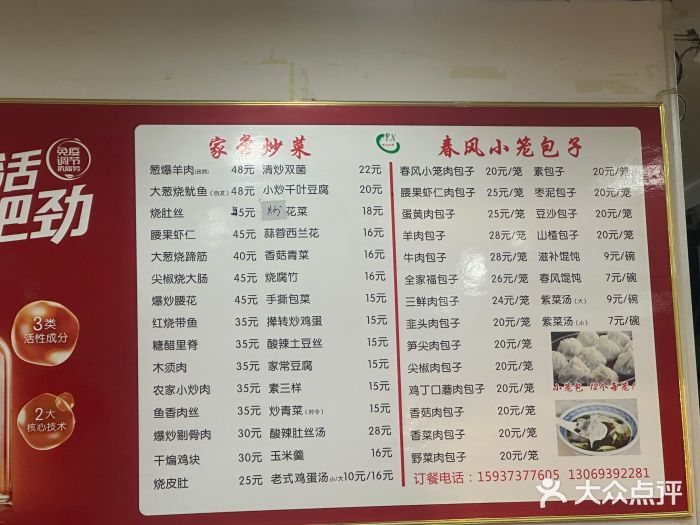 活
吧劲
免疫
调节
抗疲劳
3类
活性成分
2大
核心技术
家常炒菜
葱爆羊肉 48元 清炒双菌 22元
大葱烧鱿鱼(自发) 48元 小炒千叶豆腐 20元
烧肚丝 45元 炒花菜 18元
腰果虾仁 45元 蒜蓉西兰花 16元
大葱烧蹄筋 40元 香菇青菜 16元
尖椒烧大肠 45元 烧腐竹 16元
爆炒腰花 45元 手撕包菜 15元
红烧带鱼 35元 撵转炒鸡蛋 15元
糖醋里脊 35元 酸辣土豆丝 15元
木须肉 35元 家常豆腐 15元
农家小炒肉 35元 素三样 15元
鱼香肉丝 35元 炒青菜(时令) 15元
爆炒剔骨肉 30元 酸辣肚丝汤 28元
干煸鸡块 30元 玉米羹 16元
烧皮肚 25元 老式鸡蛋汤小/大10元/16元
春风小笼包子
春风小笼肉包子 20元/笼 素包子 20元/笼
腰果虾仁肉包子 25元/笼 枣泥包子 20元/笼
蛋黄肉包子 20元/笼 豆沙包子 20元/笼
羊肉包子 30元/笼 山楂包子 20元/笼
牛肉包子 28元/笼 滋补馄饨 9元/碗
全家福包子 26元/笼 春风馄饨 7元/碗
三鲜肉包子 24元/笼 紫菜汤(大) 9元/碗
韭头肉包子 20元/笼 紫菜汤(小) 7元/碗
笋尖肉包子 20元/笼
尖椒肉包子 20元/笼
鸡丁口蘑肉包子 20元/笼
香菇肉包子 20元/笼
香菜肉包子 20元/笼
野菜肉包子 20元/笼
小笼包 12个每笼!
订餐电话:15937377605 13069392281
大众点评